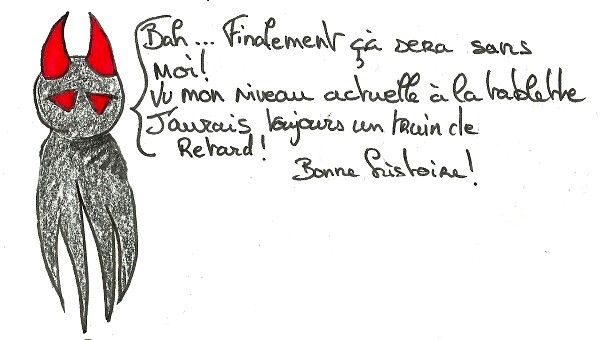 Bah... Finalement çà sera sans
moi!
Vu mon niveau actuelle à la tablette
J'aurais toujours un train de
Retard!
Bonne histoire!